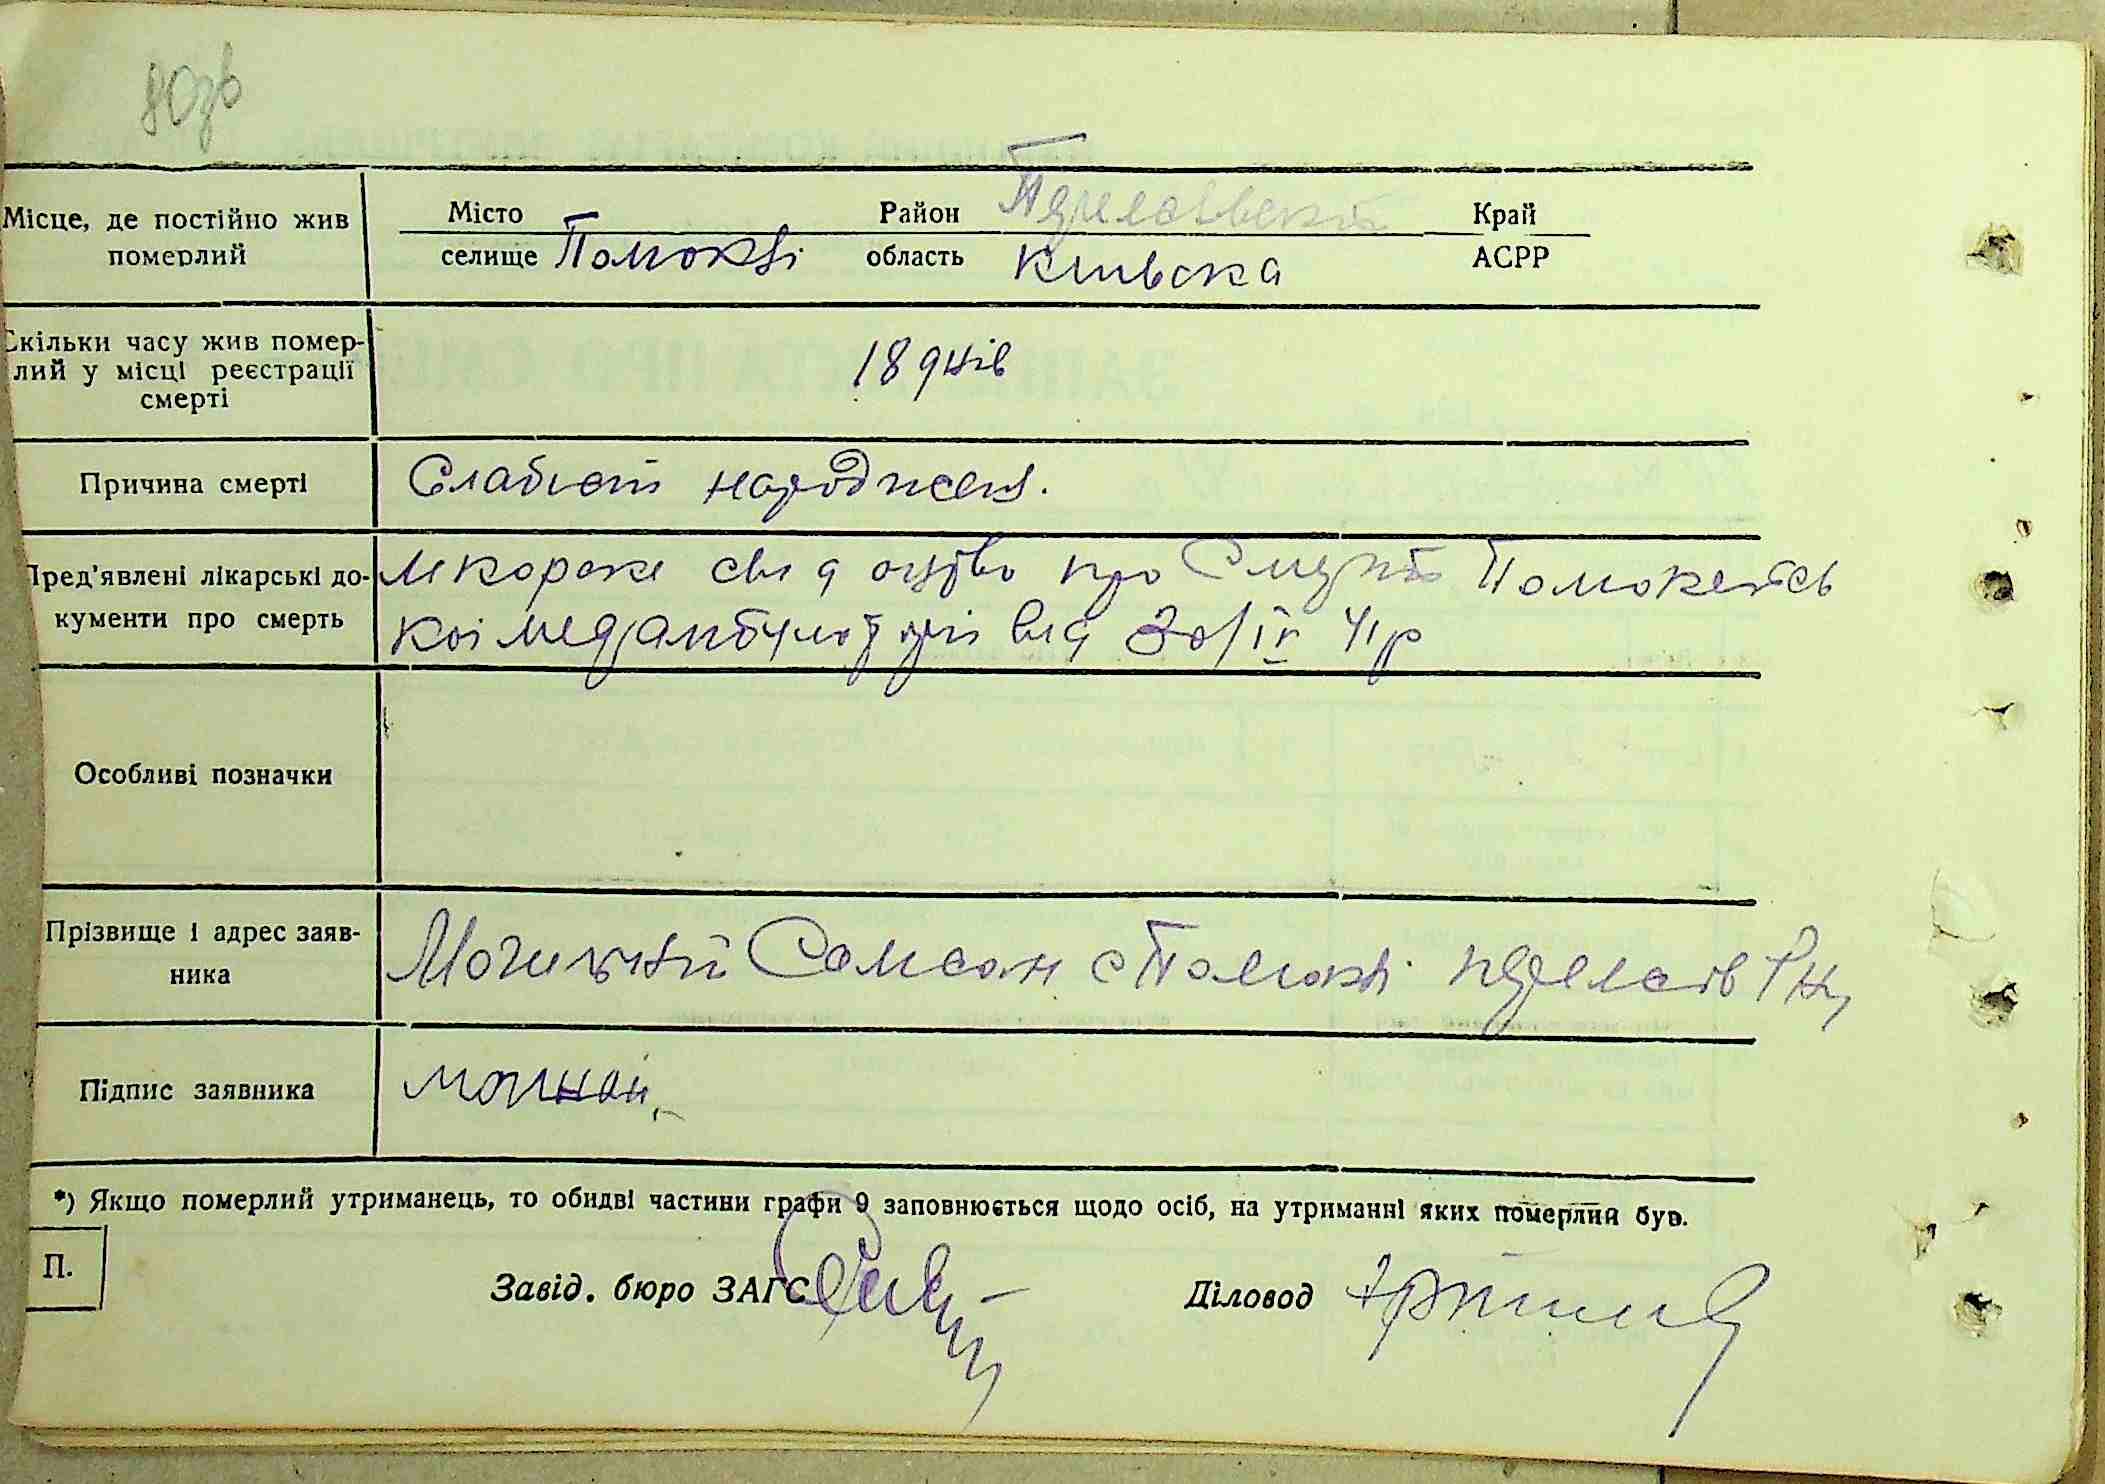 80зв
Місце, де постійно жив
померлий
Місто Район
селище Помоклі область Київска
Край
АСРР
Скільки часу жив помер-
лий у місці реєстрації
смерті
18 днів
Причина смерті
Слабість народжен.
Пред'явлені лікарські до-
кументи про смерть
про Смерть Помокельсь
кої медамбулаторії від 30/IV 41р
Особливі позначки
Прізвище і адрес заяв-
ника
Самсон с Помоклі
Підпис заявника
*) Якщо померлий утриманець, то обидві частини графи 9 заповнюється щодо осіб, на утриманні яких померлий був.
П.
Завід. бюро ЗАГС Діловод